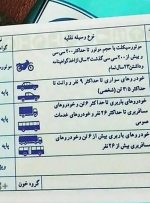 نوع وسیله نقلیه
موتورسیکلت با حجم موتور تا حداکثر ۲۰۰ سی سی
و بیش از ۲۰۰ سی سی گذشت ۲ سال از اخذ گواهینامه
و داشتن ۲۳ سال تمام
موتور
خودروهای سواری تا حداکثر ۹ نفر و وانت تا
حداکثر ۳/۵ تن (شخصی)
پایه
خودروهای باربری تا حداکثر ۶ تن و خودروهای
مسافربری تا حداکثر ۲۶ نفر و خودروهای خدمات
عمومی
پایه
خودروهای باربری بیش از ۶ تن و خودروهای
مسافربری بیش از ۲۶ نفر
پایه
گروه خون